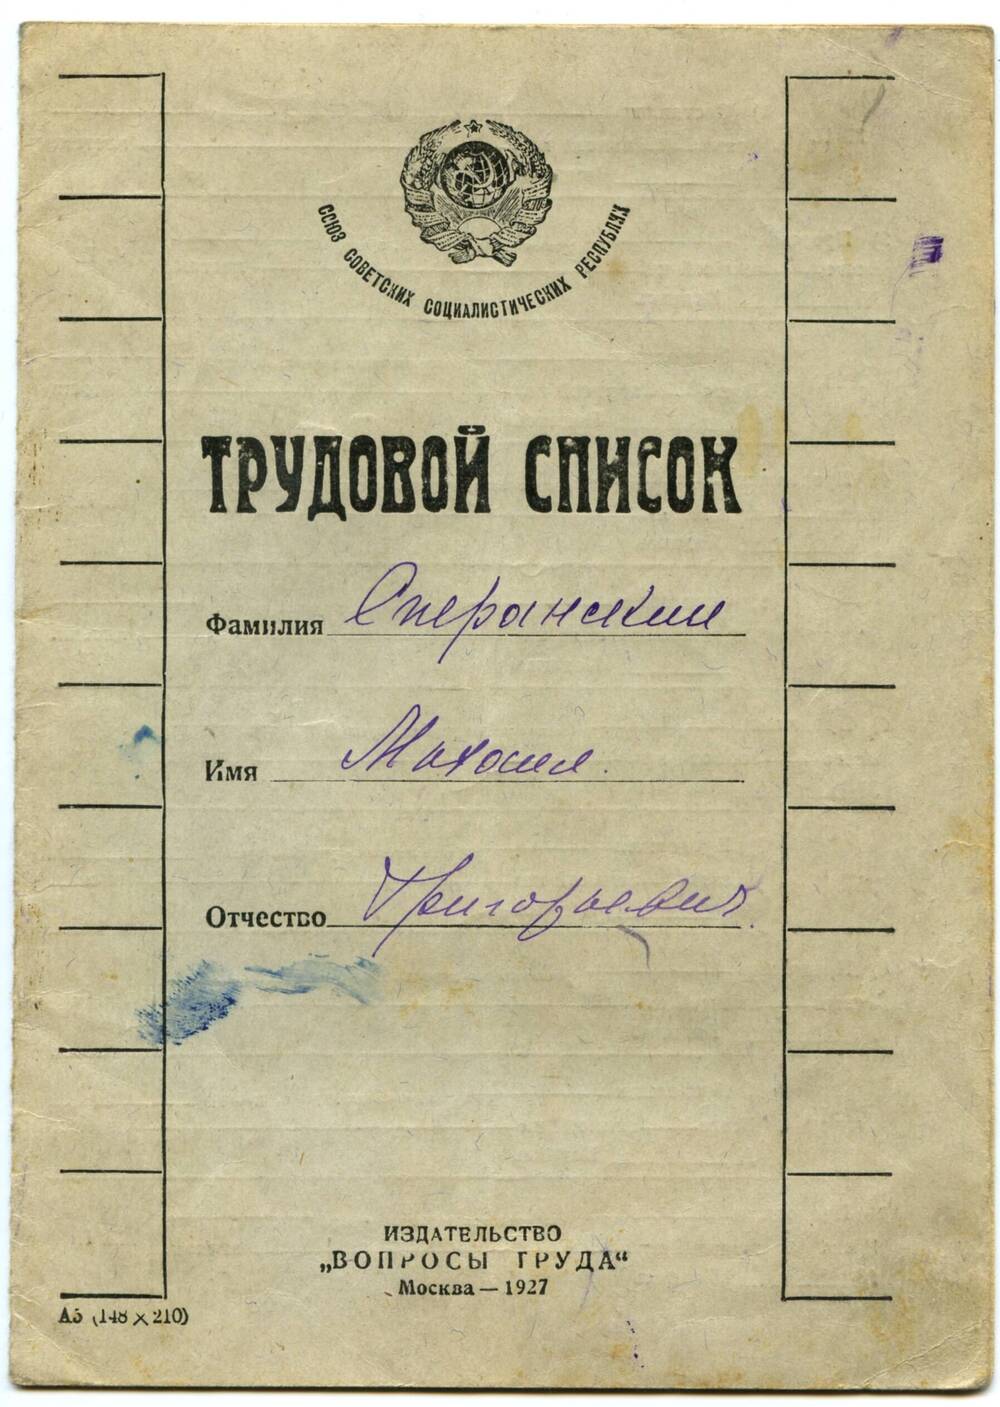 СОЮЗ СОВЕТСКИХ СОЦИАЛИСТИЧЕСКИХ РЕСПУБЛИК
ТРУДОВОЙ СПИСОК
Фамилия Сперанский
Имя Михаил.
Отчество Григорьевич.
ИЗДАТЕЛЬСТВО
„ВОПРОСЫ ТРУДА“
Москва — 1927
А5 (148 × 210)